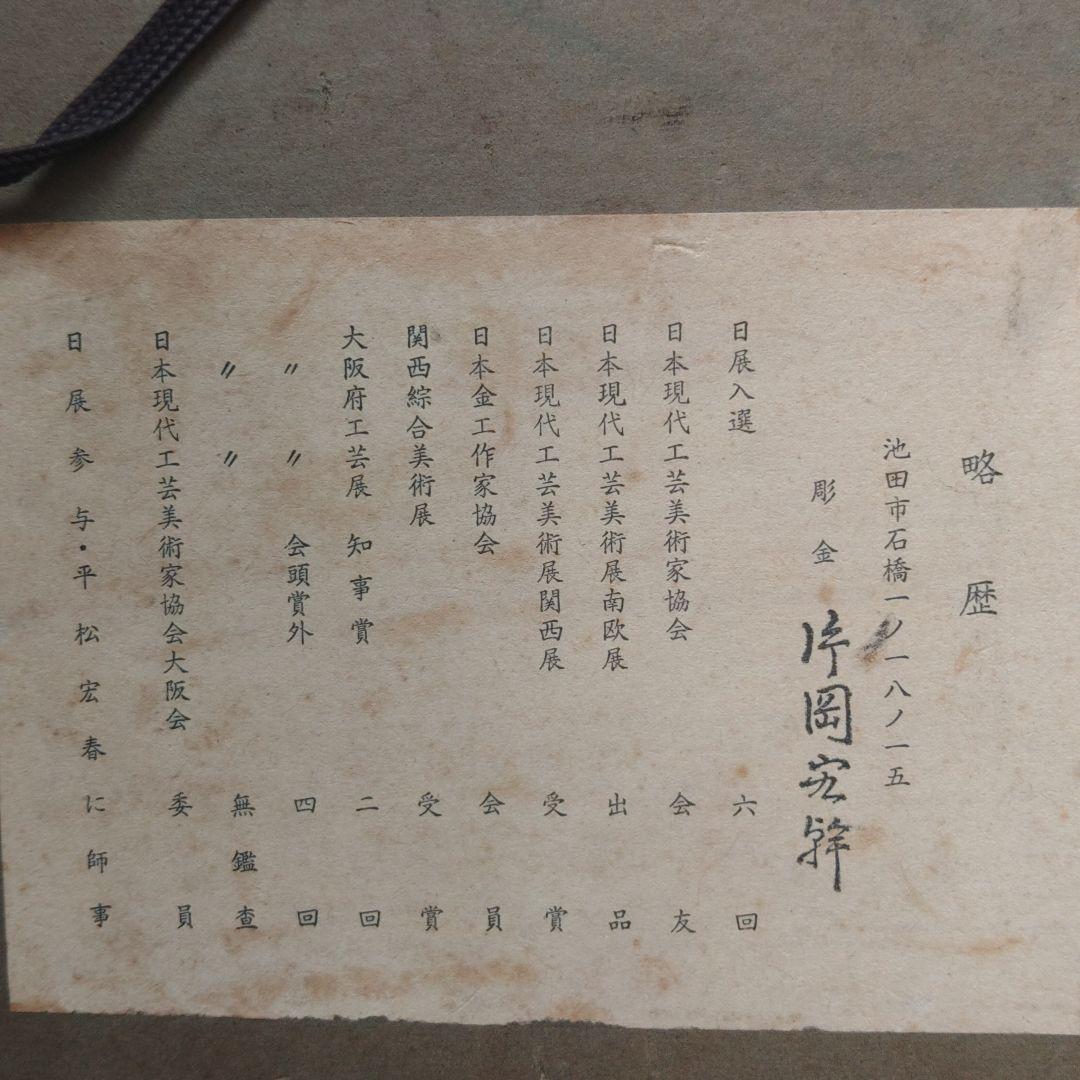 略歴
池田市石橋一ノ一八ノ一五
彫金 片岡宏幹
日展入選 六回
日本現代工芸美術家協会 会友
日本現代工芸美術展南欧展 出品
日本現代工芸美術展関西展 受賞
日本金工作家協会 会員
関西綜合美術展 受賞
大阪府工芸展 知事賞 二回
〃 〃 会頭賞外 四回
〃 〃 無鑑査
日本現代工芸美術家協会大阪会 委員
日展参与・平松宏春に師事